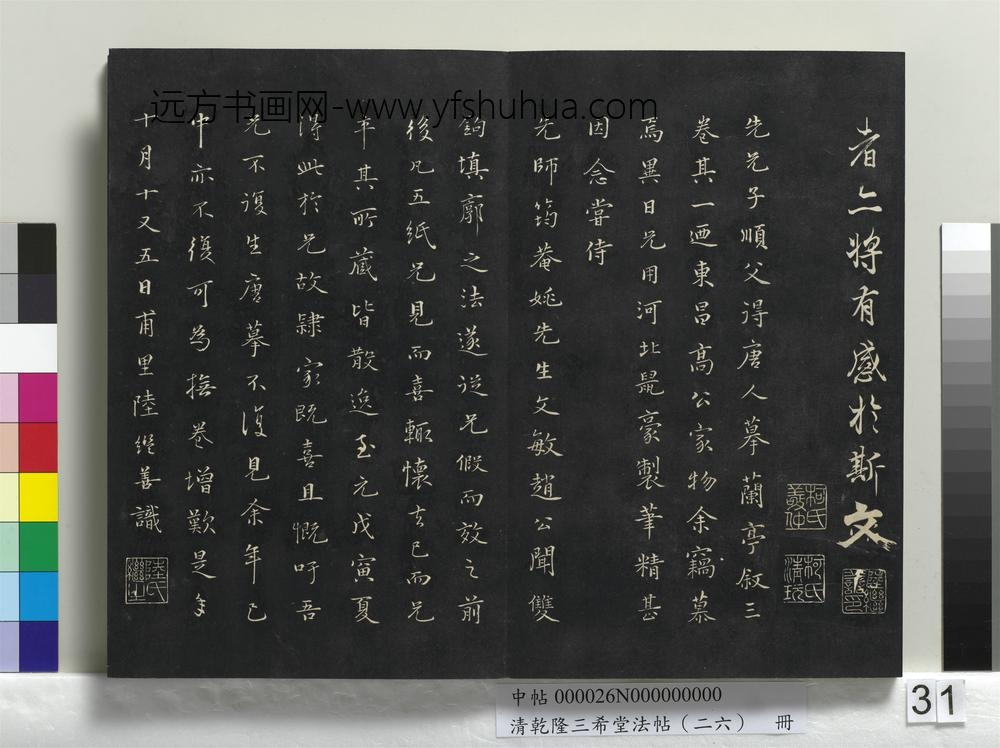 远方书画网-www.yfshuhua.com
者亦將有感於斯文
柯氏敬仲
柯氏清玩
先兄子順父得唐人摹蘭亭叙三
卷其一迺東昌高公家物余竊慕
焉異日兄用河北鼠豪製筆精甚
因念嘗侍
先師筠菴姚先生文敏趙公聞雙
鉤填廓之法遂從兄假而效之前
後凡五紙兄見而喜輒懷去已而兄
卒其所藏皆散逸至元戊寅夏
得此於兄故隸家既喜且慨吁吾
兄不復生唐摹不復見余年已
中亦不復可為撫卷增歎是年
十月十又五日甫里陸繼善識
陸氏繼之
中帖 000026N000000000
清乾隆三希堂法帖（二六） 冊
31